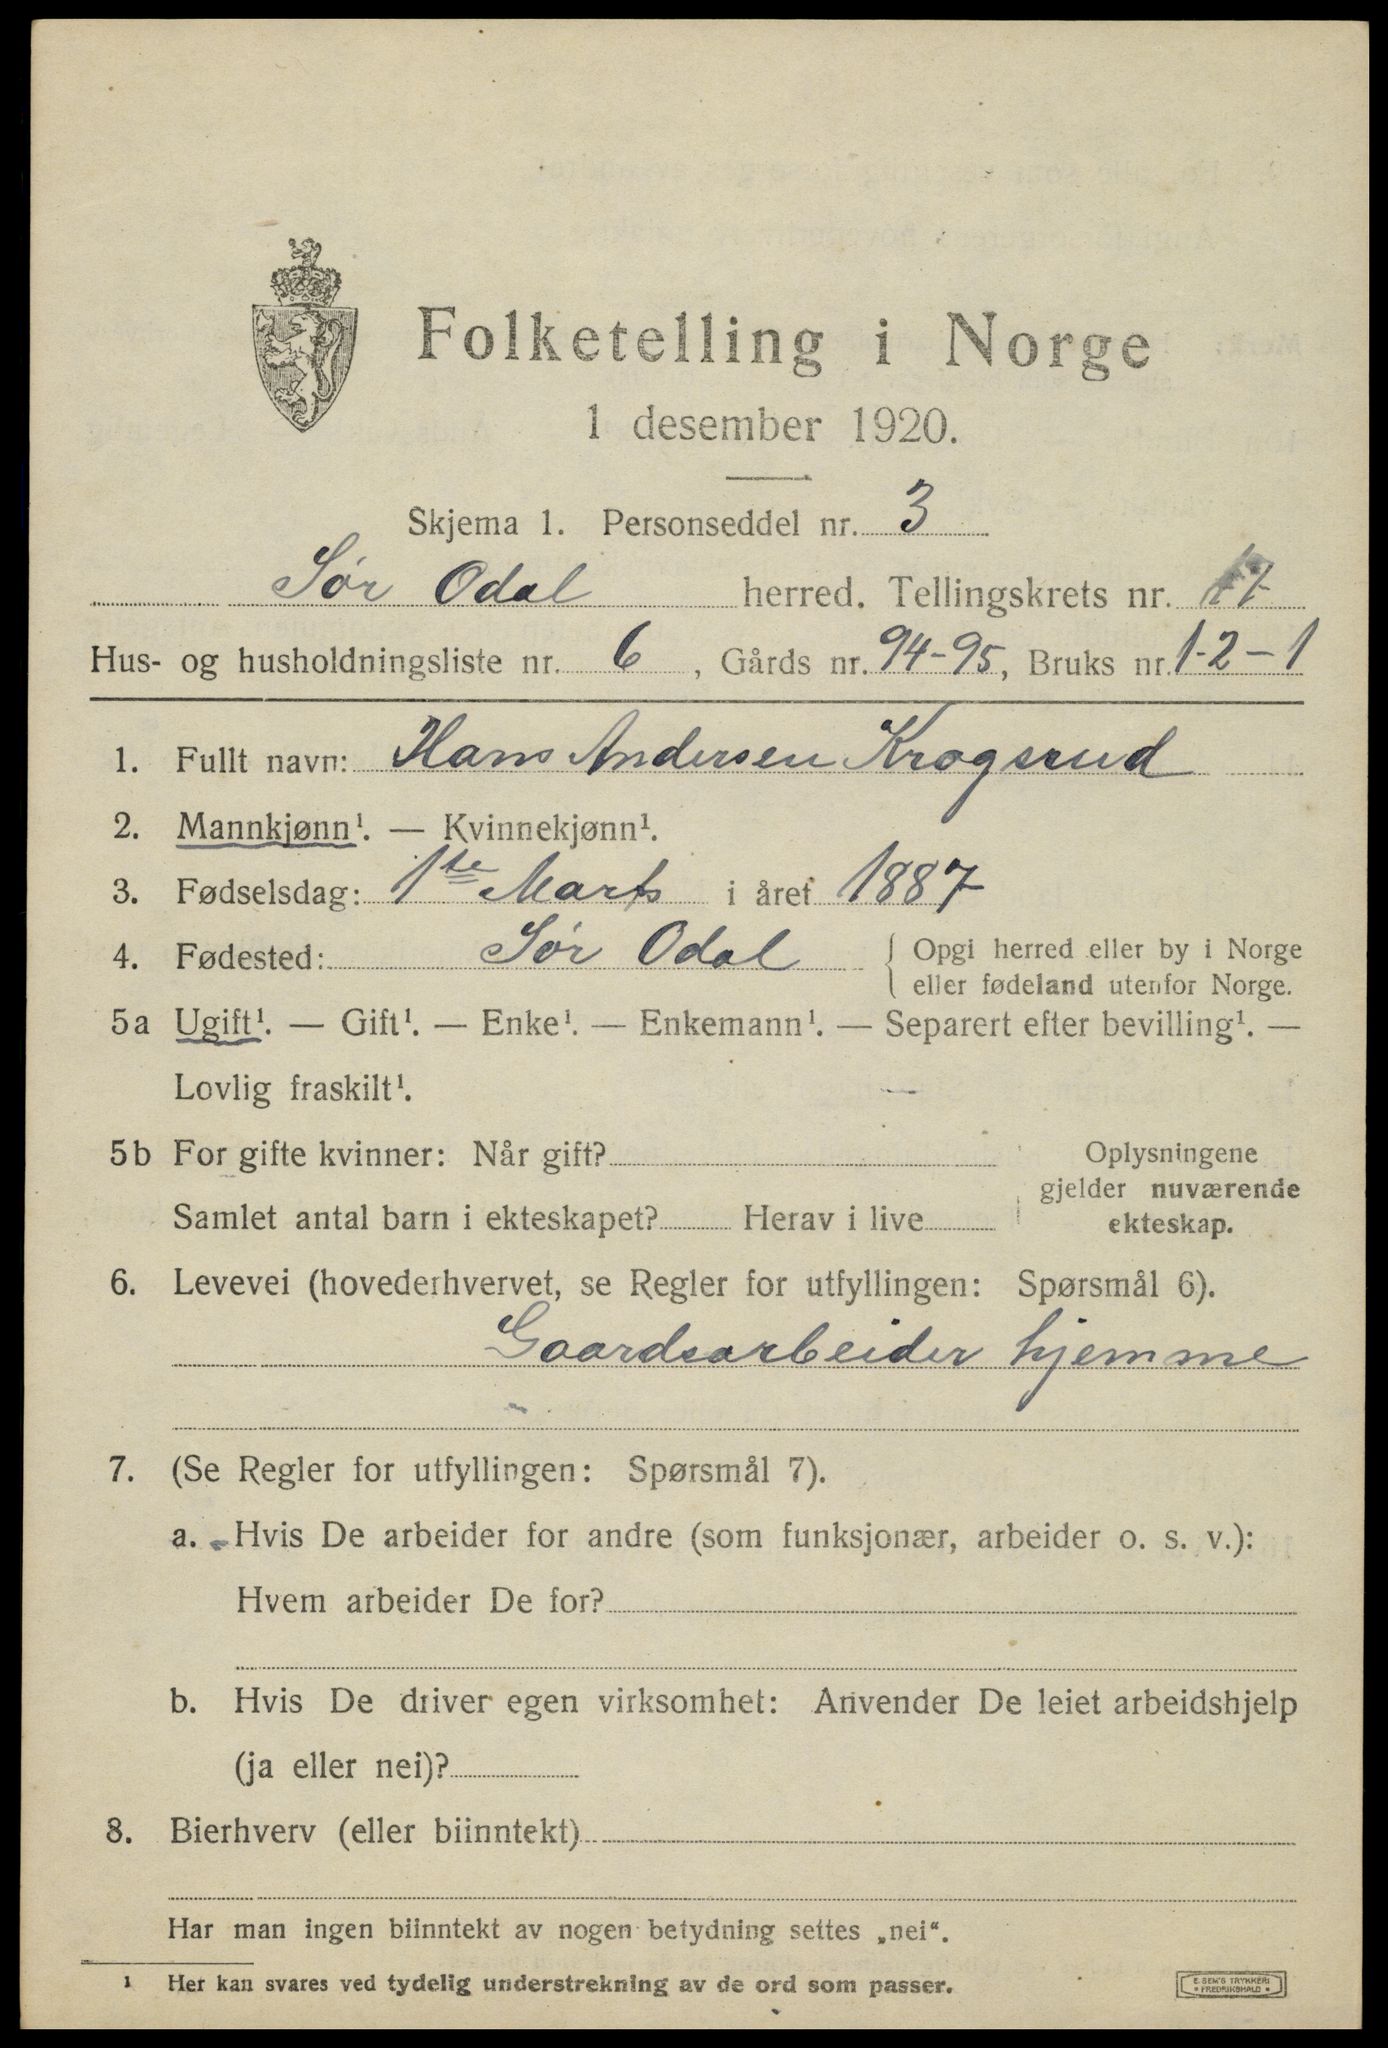 Folketelling i Norge
1 desember 1920.
Skjema 1. Personseddel nr. 3
Sør Odal herred. Tellingskrets nr. 17
Hus- og husholdningsliste nr. 6, Gårds nr. 94-95, Bruks nr. 1-2-1
1. Fullt navn: Hans Andersen Krogsrud
2. Mannkjønn¹. — Kvinnekjønn¹.
3. Fødselsdag: 1ste Marts i året 1887
4. Fødested: Sør Odal { Opgi herred eller by i Norge
eller fødeland utenfor Norge.
5a Ugift¹. — Gift¹. — Enke¹. — Enkemann¹. — Separert efter bevilling¹. —
Lovlig fraskilt¹.
5b For gifte kvinner: Når gift? Oplysningene
gjelder nuværende
Samlet antal barn i ekteskapet? Herav i live ekteskap.
6. Levevei (hovederhvervet, se Regler for utfyllingen: Spørsmål 6).
Gaardsarbeider hjemme
7. (Se Regler for utfyllingen: Spørsmål 7).
a. Hvis De arbeider for andre (som funksjonær, arbeider o. s. v.):
Hvem arbeider De for?
b. Hvis De driver egen virksomhet: Anvender De leiet arbeidshjelp
(ja eller nei)?
8. Bierhverv (eller biinntekt)
Har man ingen biinntekt av nogen betydning settes „nei“.
¹ Her kan svares ved tydelig understrekning av de ord som passer.
E. SEM'S TRYKKERI
FREDRIKSHALD